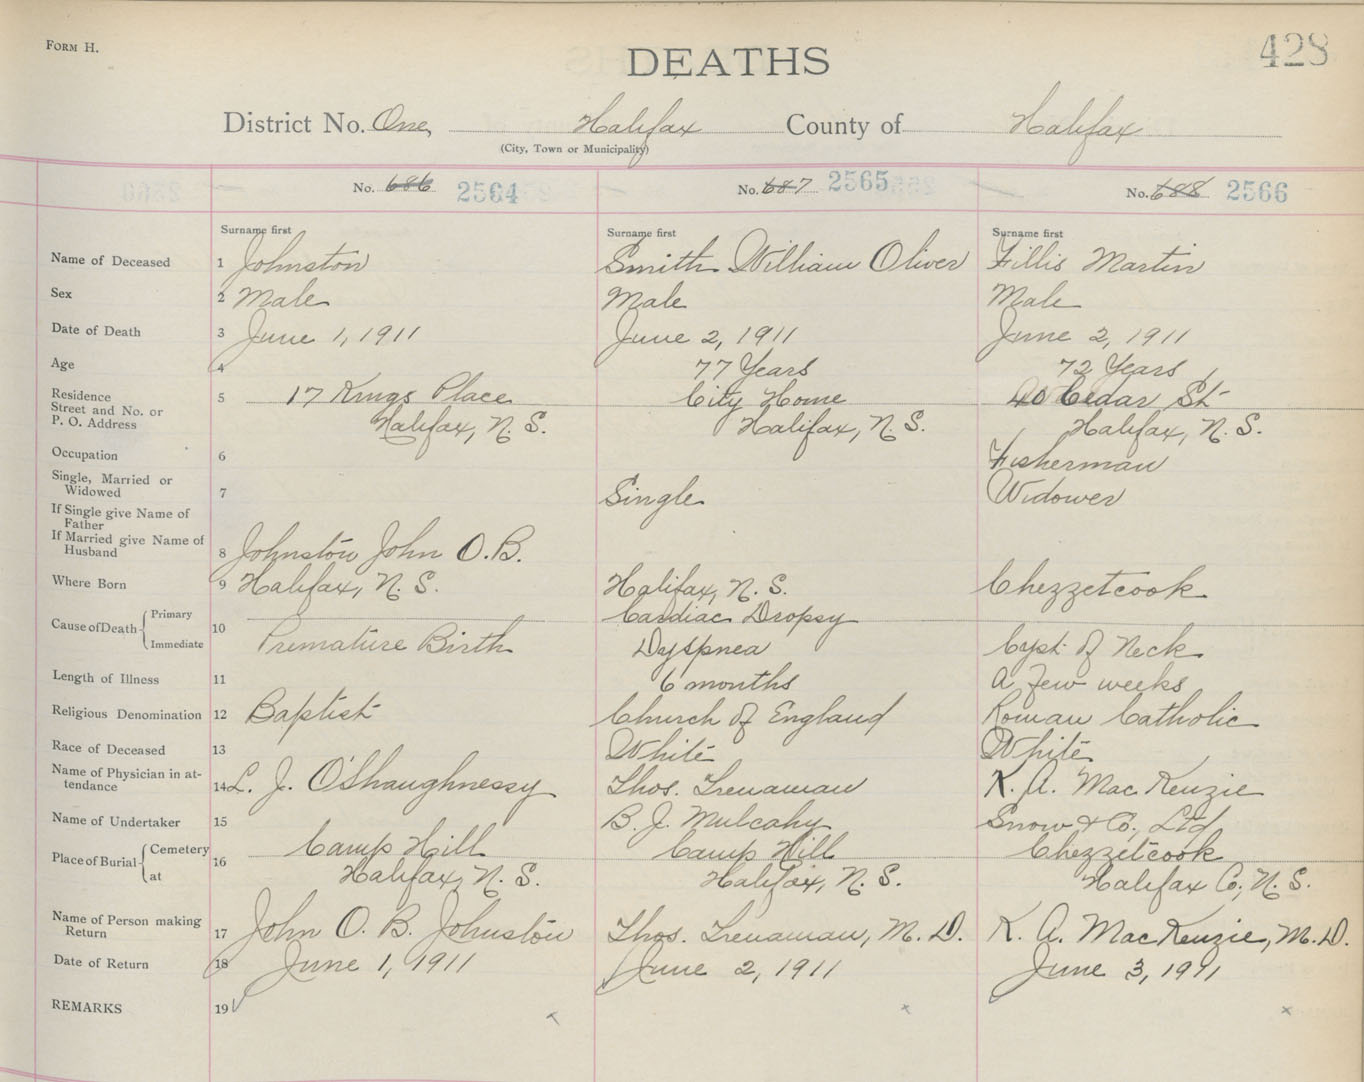 FORM H.
DEATHS
428
District No. One, Halifax County of Halifax
(City, Town or Municipality)
No. 686 2564 No. 687 2565 No. 688 2566
Surname first Surname first Surname first
Name of Deceased 1 Johnston Smith William Oliver Fillis Martin
Sex 2 Male Male Male
Date of Death 3 June 1, 1911 June 2, 1911 June 2, 1911
Age 4 77 Years 72 Years
Residence
Street and No. or
P. O. Address 5 17 Kings Place City Home 40 Cedar St
Halifax, N. S. Halifax, N. S. Halifax, N. S.
Occupation 6 Fisherman
Single, Married or
Widowed 7 Single Widower
If Single give Name of
Father
If Married give Name of
Husband 8 Johnston John O. B.
Where Born 9 Halifax, N. S. Halifax, N. S. Chezzetcook
Cause of Death Primary 10 Cardiac Dropsy
Immediate Premature Birth Dyspnea Cyst of Neck
Length of Illness 11 6 months A few weeks
Religious Denomination 12 Baptist Church of England Roman Catholic
Race of Deceased 13 White White
Name of Physician in at-
tendance 14 L. J. O'Shaughnessy Thos. Trenaman K. A. MacKenzie
Name of Undertaker 15 B. J. Mulcahy Snow & Co. Ltd
Place of Burial Cemetery 16 Camp Hill Camp Hill Chezzetcook
at Halifax, N. S. Halifax, N. S. Halifax Co., N. S.
Name of Person making
Return 17 John O. B. Johnston Thos. Trenaman, M. D. K. A. MacKenzie, M. D.
Date of Return 18 June 1, 1911 June 2, 1911 June 3, 1911
REMARKS 19